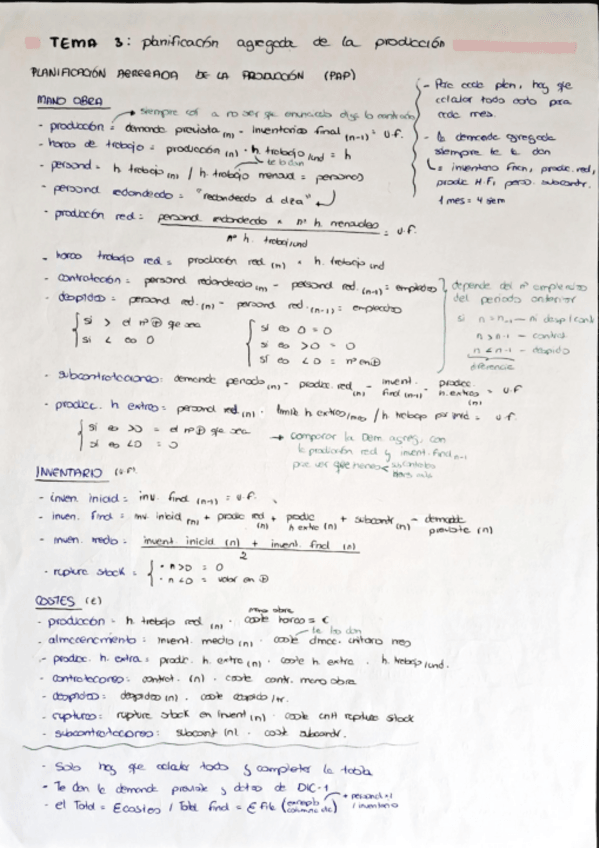 TEMA 3: planificación agregada de la producción
PLANIFICACIÓN AGREGADA DE LA PRODUCCIÓN (PAP)
- Para cada plan, hay que
calcular todo esto para
cada mes.
- la demanda agregada
siempre te la dan
= inventario final, produc. red,
produc H.E, perso. subcontr.
1 mes = 4 sem
MANO OBRA
siempre así a no ser que enunciado diga lo contrario
- producción = demanda prevista (n) - inventario final (n-1) = u.f.
- horas de trabajo = producción (n) · h. trabajo/und = h
te lo dan
- personal = h. trabajo (n) / h. trabajo mensual = personas
- personal redondeado = "redondeado al alza"
- producción red = personal redondeado × nº h. mensuales / nº h. trabaj/und = u.f.
- horas trabajo red = producción red. (n) × h. trabajo/und
- contratación = personal redondeado (n) - personal red. (n-1) = empleados
- despidos = personal red. (n) - personal red. (n-1) = empleados
si > el nº que sea
si < es 0
si es 0 = 0
si es >0 = 0
si es <0 = nº en ⊕
depende del nº empleados
del periodo anterior
si n = n-1 — ni desp/cont
n > n-1 — contrat.
n < n-1 — despido
diferencia
- subcontrataciones: demanda periodo (n) - produc. red (n) - invent. final (n-1) - produc. h. extras (n) = u.f
- produc. h extras = personal red. (n) · limite h extras/mes / h. trabajo por und = u.f.
si es >0 = el nº ⊕ que sea
si es <0 = 0
→ comparar la Dem. agreg. con
la producción red y invent. final n-1
para ver que
INVENTARIO (u.f.)
- inven. inicial = inv. final (n-1) = u.f.
- inven. final = inv. inicial (n) + produc red (n) + produc h extra (n) + subcontr (n) - demanda prevista (n)
- inven. medio = invent. inicial (n) + invent. final (n) / 2
- ruptura stock = • n>0 = 0
• n<0 = valor en ⊕
COSTES (€)
- producción = h. trabajo red (n) · coste horas mano obra = €
te lo dan
- almacenamiento: invent. medio (n) · coste almac. unitario mes
- produc. h. extra = produc. h. extra (n) · coste h. extra · h. trabajo/und.
- contrataciones: contrat. (n) · coste contr. mano obra
- despidos: despidos (n) · coste despido/tr.
- rupturas: ruptura stock en invent (n) · coste unit ruptura stock
- subcontrataciones: subcont (n) · coste subcontr.
- Solo hay que calcular todo y completar la tabla
- Te dan la demanda prevista y datos de DIC-1
- el Total = Σcostes / Total final = Σ fila (ejemplo columna dic) + personal / inventario